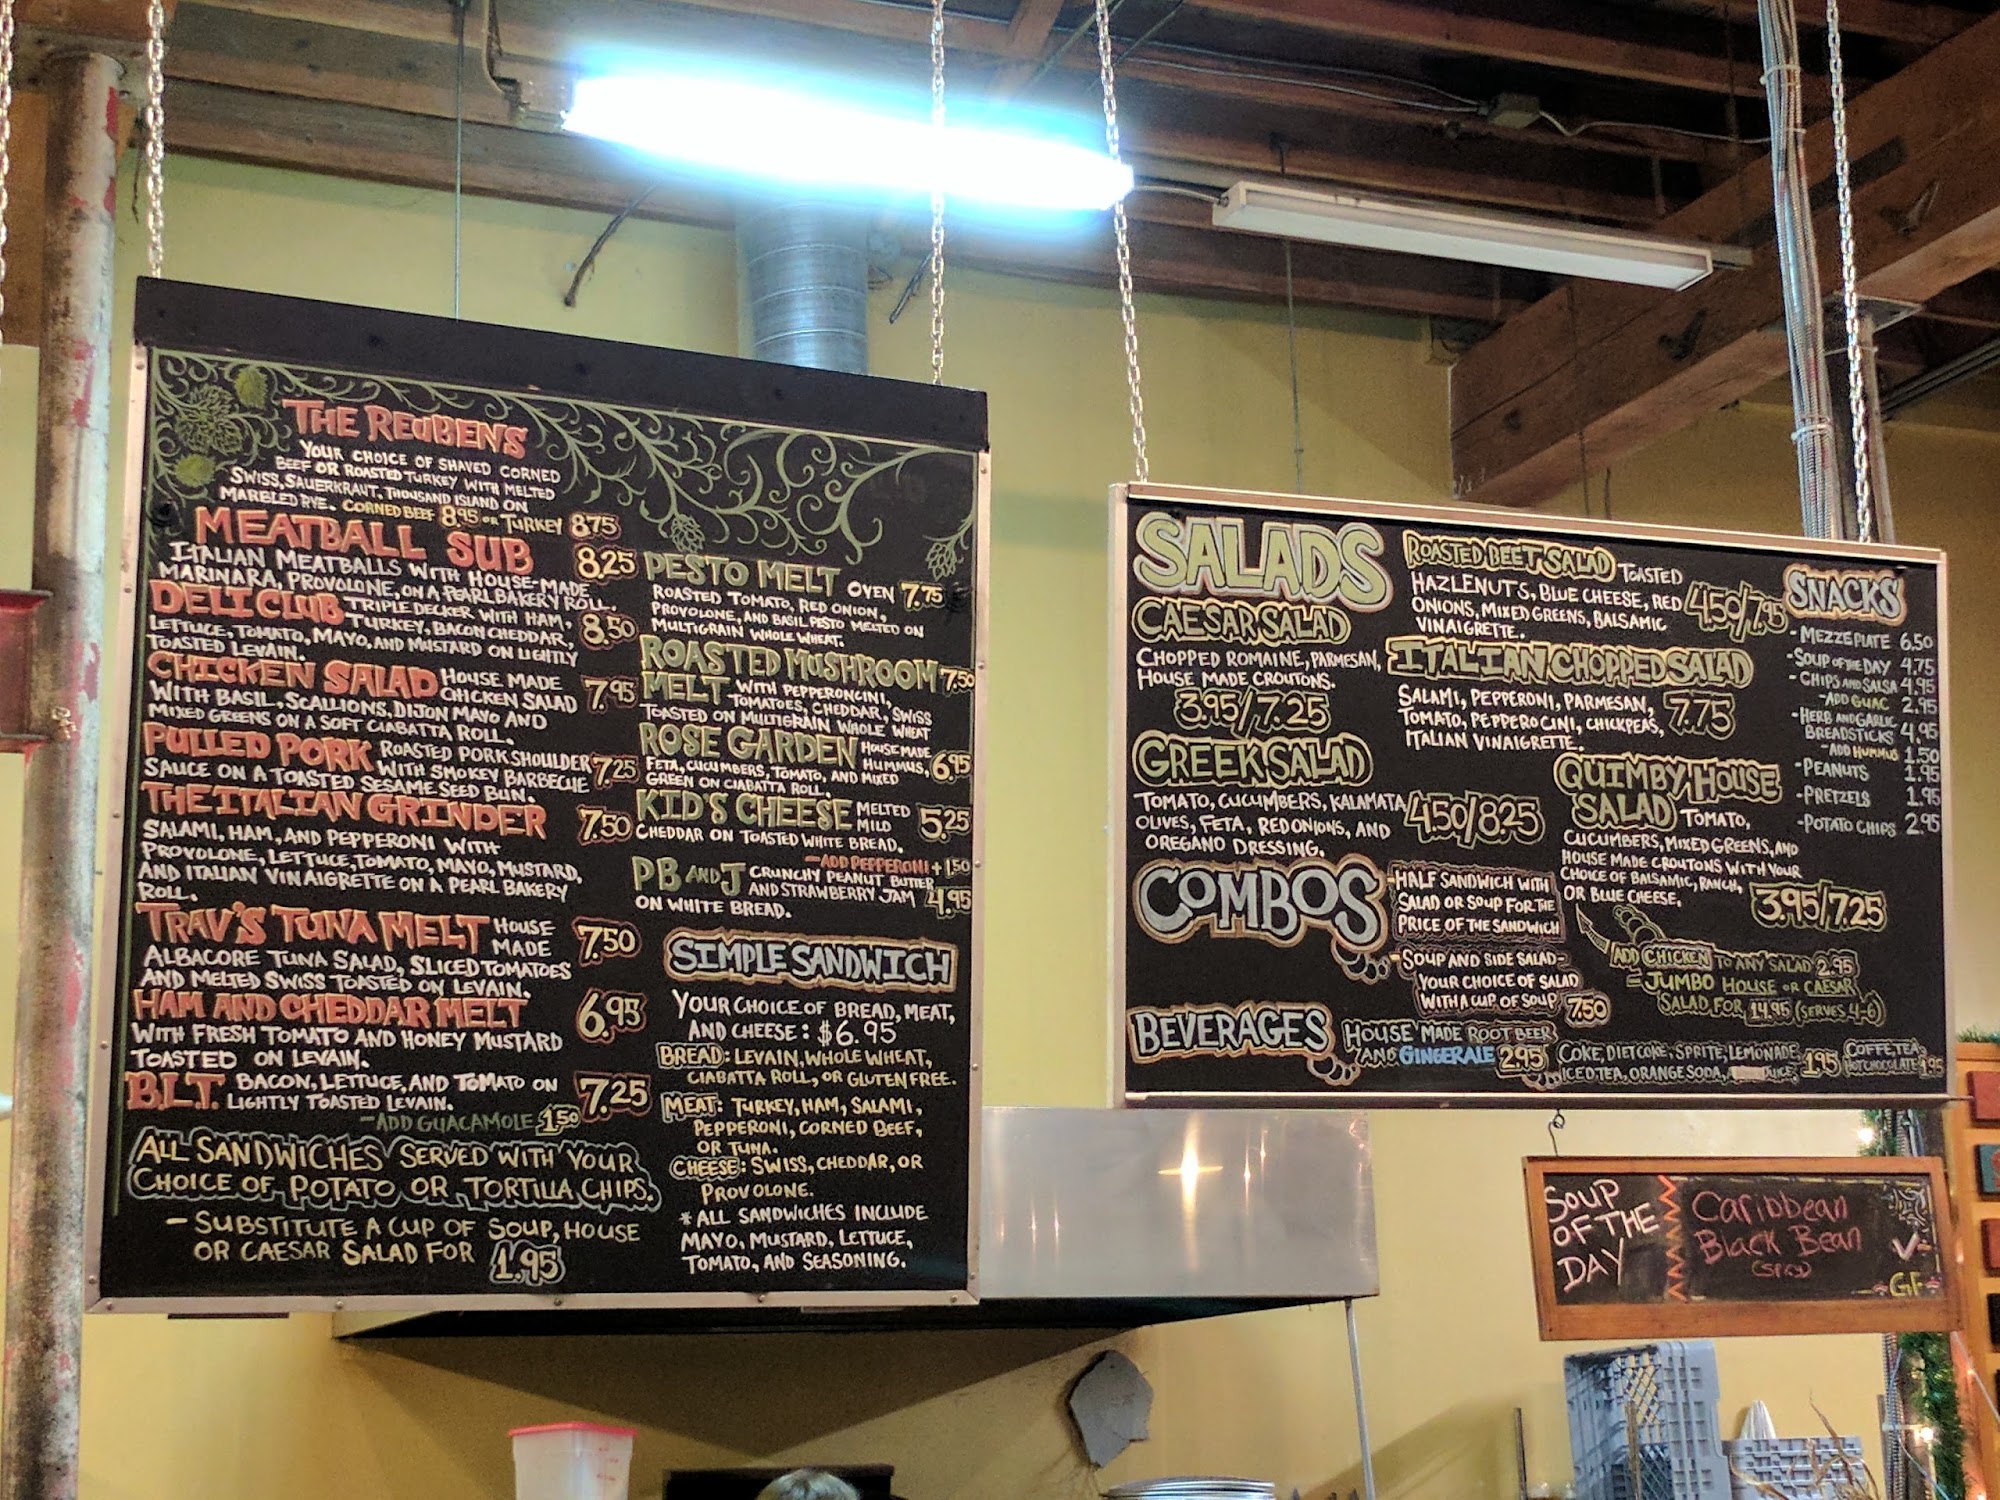 THE REUBENS
YOUR CHOICE OF SHAVED CORNED
BEEF OR ROASTED TURKEY WITH MELTED
SWISS, SAUERKRAUT, THOUSAND ISLAND ON
MARBLED RYE. CORNED BEEF 8.95 OR TURKEY 8.75
MEATBALL SUB 8.25
ITALIAN MEATBALLS WITH HOUSE-MADE
MARINARA, PROVOLONE, ON A PEARL BAKERY ROLL.
DELI CLUB TRIPLE DECKER WITH HAM, 8.50
TURKEY, BACON, CHEDDAR,
LETTUCE, TOMATO, MAYO, AND MUSTARD ON LIGHTLY
TOASTED LEVAIN.
CHICKEN SALAD HOUSE MADE 7.95
CHICKEN SALAD
WITH BASIL, SCALLIONS, DIJON MAYO AND
MIXED GREENS ON A SOFT CIABATTA ROLL.
PULLED PORK ROASTED PORK SHOULDER 7.25
WITH SMOKEY BARBECUE
SAUCE ON A TOASTED SESAME SEED BUN.
THE ITALIAN GRINDER 7.50
SALAMI, HAM, AND PEPPERONI WITH
PROVOLONE, LETTUCE, TOMATO, MAYO, MUSTARD,
AND ITALIAN VINAIGRETTE ON A PEARL BAKERY
ROLL.
TRAV'S TUNA MELT HOUSE 7.50
MADE
ALBACORE TUNA SALAD, SLICED TOMATOES
AND MELTED SWISS TOASTED ON LEVAIN.
HAM AND CHEDDAR MELT 6.95
WITH FRESH TOMATO AND HONEY MUSTARD
TOASTED ON LEVAIN.
B.L.T. BACON, LETTUCE, AND TOMATO ON 7.25
LIGHTLY TOASTED LEVAIN.
-ADD GUACAMOLE 1.50
ALL SANDWICHES SERVED WITH YOUR
CHOICE OF POTATO OR TORTILLA CHIPS.
- SUBSTITUTE A CUP OF SOUP, HOUSE
OR CAESAR SALAD FOR 1.95
PESTO MELT OVEN 7.75
ROASTED TOMATO, RED ONION,
PROVOLONE, AND BASIL PESTO MELTED ON
MULTIGRAIN WHOLE WHEAT.
ROASTED MUSHROOM 7.50
MELT WITH PEPPERONCINI,
TOMATOES, CHEDDAR, SWISS
TOASTED ON MULTIGRAIN WHOLE WHEAT
ROSE GARDEN HOUSE MADE 6.95
HUMMUS,
FETA, CUCUMBERS, TOMATO, AND MIXED
GREEN ON CIABATTA ROLL.
KID'S CHEESE MELTED 5.25
MILD
CHEDDAR ON TOASTED WHITE BREAD.
-ADD PEPPERONI + 1.50
PB AND J CRUNCHY PEANUT BUTTER 4.95
AND STRAWBERRY JAM
ON WHITE BREAD.
SIMPLE SANDWICH
YOUR CHOICE OF BREAD, MEAT,
AND CHEESE: $6.95
BREAD: LEVAIN, WHOLE WHEAT,
CIABATTA ROLL, OR GLUTEN FREE.
MEAT: TURKEY, HAM, SALAMI,
PEPPERONI, CORNED BEEF,
OR TUNA.
CHEESE: SWISS, CHEDDAR, OR
PROVOLONE.
*ALL SANDWICHES INCLUDE
MAYO, MUSTARD, LETTUCE,
TOMATO, AND SEASONING.
SALADS
CAESAR SALAD
CHOPPED ROMAINE, PARMESAN,
HOUSE MADE CROUTONS.
3.95/7.25
GREEK SALAD
TOMATO, CUCUMBERS, KALAMATA 4.50/8.25
OLIVES, FETA, RED ONIONS, AND
OREGANO DRESSING.
ROASTED BEET SALAD TOASTED
HAZLENUTS, BLUE CHEESE, RED 4.50/7.95
ONIONS, MIXED GREENS, BALSAMIC
VINAIGRETTE.
ITALIAN CHOPPED SALAD
SALAMI, PEPPERONI, PARMESAN,
TOMATO, PEPPEROCINI, CHICKPEAS, 7.75
ITALIAN VINAIGRETTE.
QUIMBY HOUSE
SALAD TOMATO,
CUCUMBERS, MIXED GREENS, AND
HOUSE MADE CROUTONS WITH YOUR
CHOICE OF BALSAMIC, RANCH,
OR BLUE CHEESE. 3.95/7.25
ADD CHICKEN TO ANY SALAD 2.95
- JUMBO HOUSE OR CAESAR
SALAD FOR 14.95 (SERVES 4-6)
SNACKS
-MEZZE PLATE 6.50
-SOUP OF THE DAY 4.75
-CHIPS AND SALSA 4.95
-ADD GUAC 2.95
-HERB AND GARLIC
BREADSTICKS 4.95
-ADD HUMMUS 1.50
-PEANUTS 1.95
-PRETZELS 1.95
-POTATO CHIPS 2.95
COMBOS
-HALF SANDWICH WITH
SALAD OR SOUP FOR THE
PRICE OF THE SANDWICH
-SOUP AND SIDE SALAD-
YOUR CHOICE OF SALAD
WITH A CUP OF SOUP 7.50
BEVERAGES
HOUSE MADE ROOT BEER
AND GINGERALE 2.95
COKE, DIET COKE, SPRITE, LEMONADE, 1.95
ICED TEA, ORANGE SODA, JUICE,
COFFEE, TEA,
HOT CHOCOLATE 1.95
SOUP
OF THE
DAY
Caribbean
Black Bean
(SPICY)
V
GF